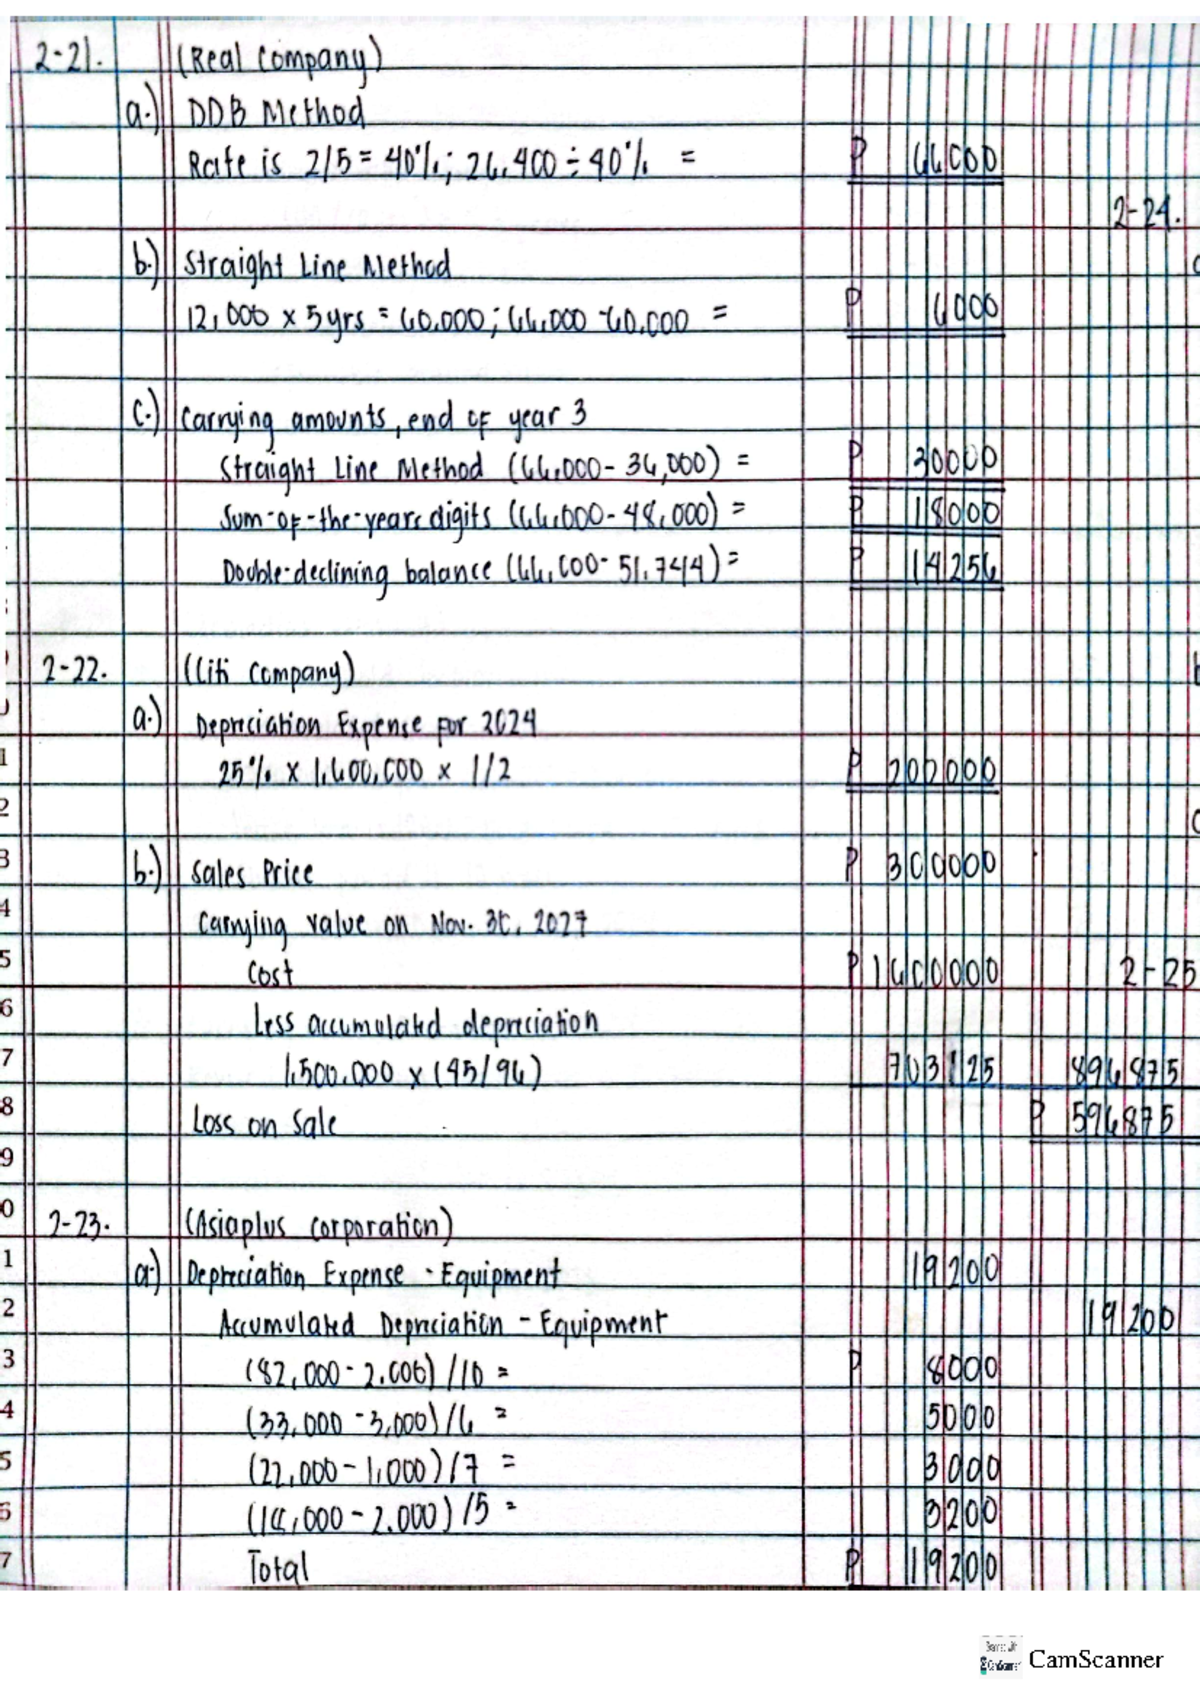 2-21. (Real Company)
a.) DDB Method
Rate is 2/5 = 40%; 26,400 ÷ 40% = P 66000
2-24.
b.) Straight Line Method
12,000 x 5yrs = 60,000; 66,000 - 60,000 = P 6000
c.) Carrying amounts, end of year 3
Straight Line Method (66,000 - 36,000) = P 30000
Sum-of-the-years digits (66,000 - 48,000) = P 18000
Double-declining balance (66,000 - 51,744) = P 14256
2-22. (Citi Company)
a.) Depreciation Expense for 2024
25% x 1,600,000 x 1/2 P 200000
b.) Sales Price P 300000
Carrying value on Nov. 30, 2027
Cost P 1600000 2-25
Less accumulated depreciation
1,500,000 x (45/96) 703125 896875
Loss on Sale P 596875
2-23. (Asiaplus Corporation)
a.) Depreciation Expense - Equipment 19200
Accumulated Depreciation - Equipment 19200
(82,000 - 2,000) /10 = P 8000
(33,000 - 3,000) /6 = 5000
(22,000 - 1,000) /7 = 3000
(18,000 - 2,000) /5 = 3200
Total P 19200
CamScanner